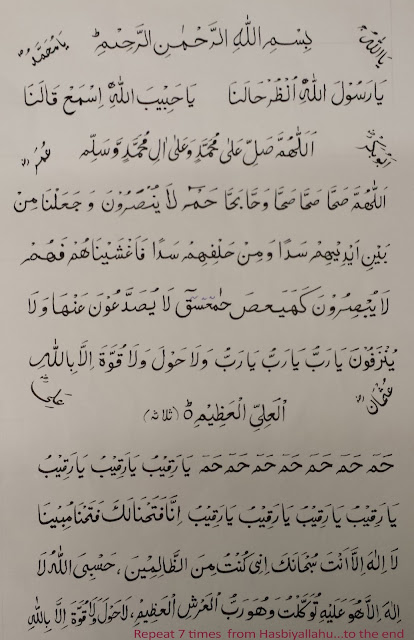 یااللہ بِسْمِ اللهِ الرَّحْمٰنِ الرَّحِيْمِ یا مُحَمَّدُ
يَارَسُوْلَ اللهِ اُنْظُرْ حَالَنَا يَاحَبِيْبَ اللهِ اِسْمَعْ قَالَنَا
ابوبکر اَللّٰهُمَّ صَلِّ عَلٰى مُحَمَّدٍ وَّعَلٰى اٰلِ مُحَمَّدٍ وَّسَلِّمْ عمر
اَللّٰهُمَّ صَحًّا صَحًّا صَحًّا وَحًّا حٰمٓ لَا يُنْصَرُوْنَ وَجَعَلْنَا مِنْ
بَيْنِ اَيْدِيْهِمْ سَدًا وَمِنْ خَلْفِهِمْ سَدًا فَاَغْشَيْنَاهُمْ فَهُمْ
لَا يُبْصِرُوْنَ كٓهٰيٰعٓصٓ حٰمٓعٓسٓقٓ لَا يُصَدَّعُوْنَ عَنْهَا وَلَا
يُنْزَفُوْنَ يَارَبُّ يَارَبُّ يَارَبُّ وَلَا حَوْلَ وَلَا قُوَّةَ اِلَّا بِاللهِ
عثمان الْعَلِيِّ الْعَظِيْمِ (ثلاثہ) علی
حٰمٓ حٰمٓ حٰمٓ حٰمٓ حٰمٓ حٰمٓ حٰمٓ يَارَقِيْبُ يَارَقِيْبُ يَارَقِيْبُ
يَارَقِيْبُ يَارَقِيْبُ يَارَقِيْبُ يَارَقِيْبُ اِنَّا فَتَحْنَا لَكَ فَتْحًا مُبِيْنًا
لَا اِلٰهَ اِلَّا اَنْتَ سُبْحَانَكَ اِنِّى كُنْتُ مِنَ الظَّالِمِيْنَ ، حَسْبِىَ اللهُ لَا
اِلٰهَ اِلَّا هُوَ عَلَيْهِ تَوَكَّلْتُ وَهُوَ رَبُّ الْعَرْشِ الْعَظِيْمِ، لَا حَوْلَ وَلَا قُوَّةَ اِلَّا بِاللهِ
Repeat 7 times from Hasbiyallahu...to the end